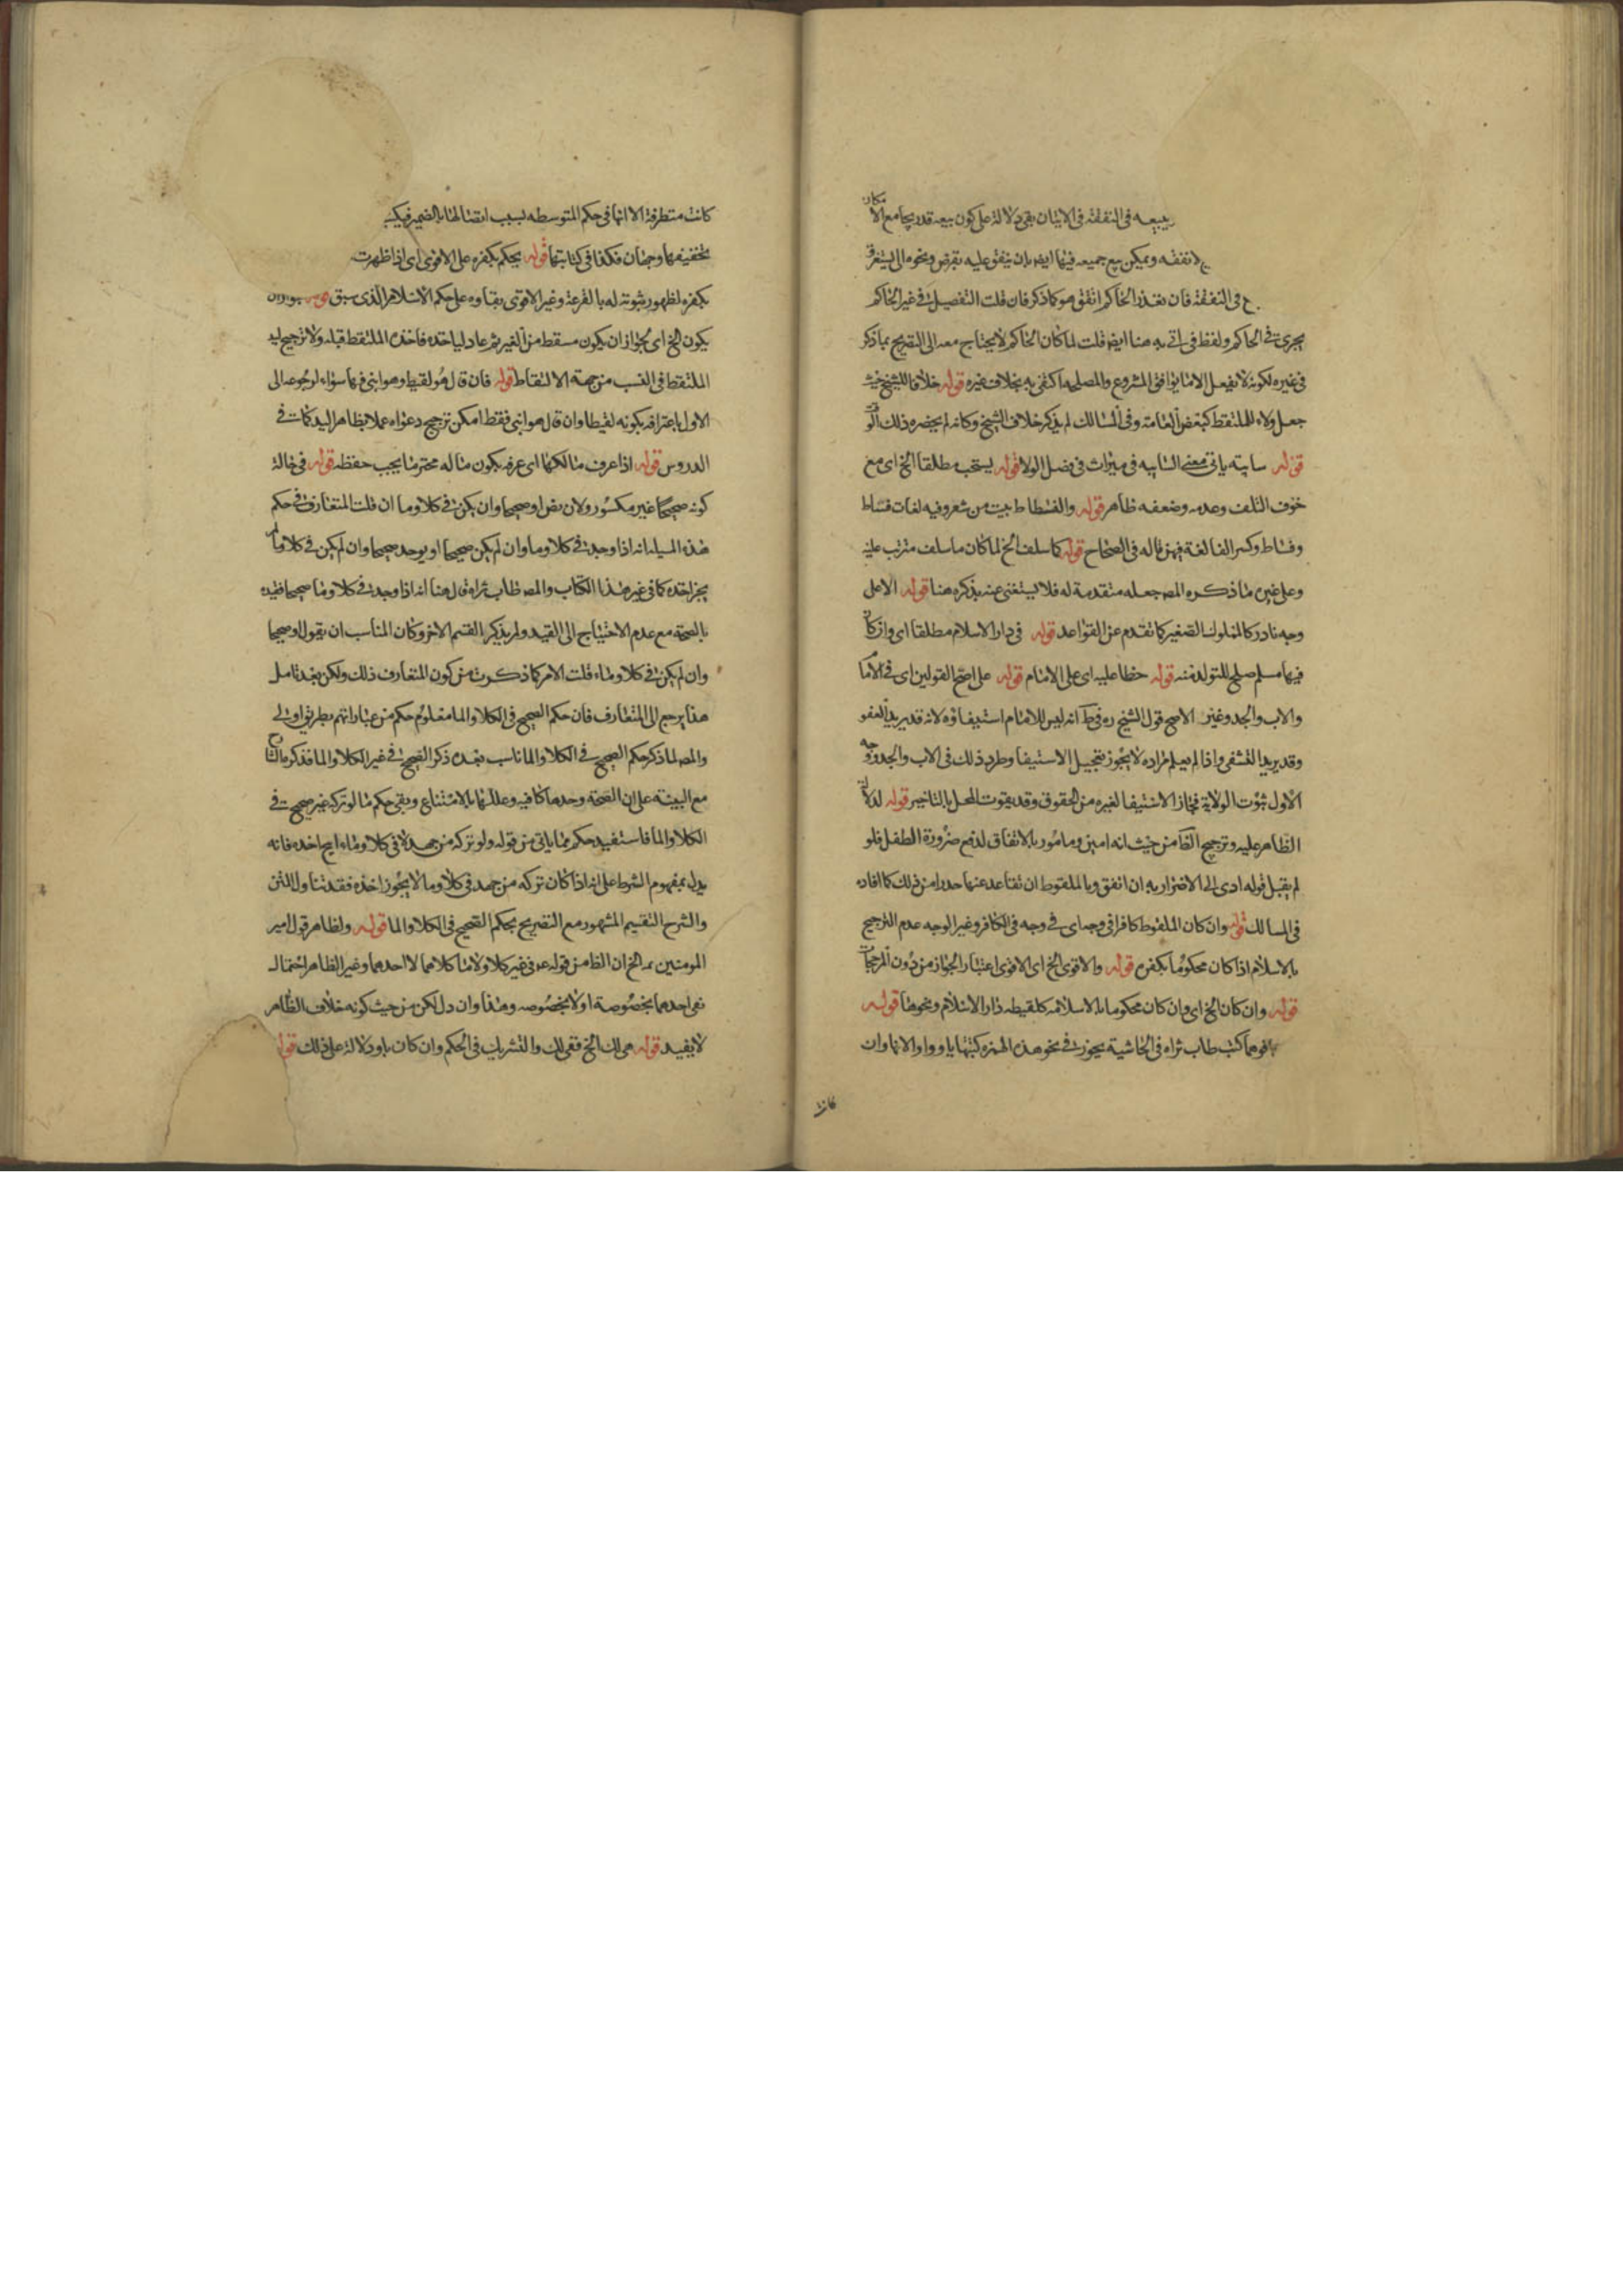 يبيعه في النفقة في الاتيان بقي دلالة على كون بيعه قدر يجامع الا مكان
لا نفقه ويمكن بيع جميعه فيها ايضا بان ينفق عليه بقرض ونحوه الى يستغرق
في النفقة فان تعذر الحاكم انفق هو كما ذكر فان قلت التفصيل في غير الحاكم
يجرى في الحاكم ولفظ في اتى به هنا ايضا قلت لما كان الحاكم لا يحتاج معه الى التصريح بما ذكر
في غيره لكونه لا يفعل الا ما يوافق المشروع والمصلحة اكتفى به بخلاف غيره قوله خلافا للشيخ حيث
جعل ولاءه للملتقط كبعض العامة وفي المسالك لم يذكر خلاف الشيخ وكانه لم يحضره ذلك الوقت
قوله سايبه ياتى معنى السايبه في ميراث في فصل الولا قوله يستحب مطلقا الخ اى مع
خوف التلف وعدمه وضعفه ظاهر قوله والفسطاط بيت من شعر وفيه لغات فستاط
وفساط وكسر الفا لغة فيهن قاله في الصحاح قوله كما سلف الخ لما كان ما سلف مترتب عليه
وعلى غيره ما ذكره المص جعله متقدمة له فلا يستغنى عنه بذكره هنا قوله الا على
وجه نادر كالمملوك الصغير كما تقدم عن القواعد قوله في دار الاسلام مطلقا اى وان كان
فيها مسلم صلح للتولد منه قوله خطا عليه اى على الامام قوله على اصح القولين اى في الامام
والاب والجد وغير الاصح قول الشيخ ره في ط انه ليس للامام استيفاؤه لانه قد يريد العفو
وقد يريد التشفى واذا لم يعلم مراده لا يجوز تعجيل الاستيفا وطرد ذلك في الاب والجد ووجه
الاول ثبوت الولاية فجاز الاستيفا لغيره من الحقوق وقد يفوت المحل بالتاخير قوله لدلالة
الظاهر عليه وترجيح الظا من حيث انه امين ومامور بالانفاق لدفع ضرورة الطفل فلو
لم يقبل قوله ادى الى الاضرار به ان انفق وبالملقوط ان تقاعد عنها حذرا من ذلك كا افاده
في المسالك قوله وان كان الملقوط كافرا في وجه اى في وجه في الكافر وغير الوجه عدم الترجيح
بالاسلام اذا كان محكوما بكفره قوله والاقوى الخ اى الاقوى اعتبار الجواز من دون المرجحات
قوله وان كان الخ اى وان كان محكوما بالاسلامه كلقيطه دار الاسلام ونحوها قوله
كتب طاب ثراه في الحاشية يجوز في نحو هذه الهمزه كتبها يا وواوا لانها وان
كانت
كانت متطرفة الا انها في حكم المتوسطه بسبب اتصالها بالضمير فيكتب
تخفيفها وجهان فكذا في كتابتها قوله يحكم بكفره على الاقوى اى اذا ظهرت
بكفره لظهور ثبوته له بالقرعة وغير الاقوى بقاوه على حكم الاسلام الذى سبق قوله بجواز ان
يكون الخ اى بجواز ان يكون مسقط من الغير ثم عاد لياخذه فاخذه الملتقط قبله ولا ترجيح ليد
الملتقط في النسب من جهة الالتقاط قوله فان قال هو لقيط وهو ابنى فهما سواء لرجوعه الى
الاول باعترافه بكونه لقيطا وان قال هو ابنى فقط امكن ترجيح دعواه عملا بظاهر اليد كما في
الدروس قوله اذا عرف مالكها اى عرفه بكون ماله محترما يجب حفظه قوله في حالة
كونه صحيحا غير مكسور ولا مريض او صحيحا وان يكن في كلا وماء ان قلت المتعارف في حكم
هذه المسيله انه اذا وجد في كلا وماء وان لم يكن صحيحا او يوجد صحيحا وان لم يكن في كلا وماء لم
يجز اخذه كما في غير هذا الكتاب والمص طاب ثراه قال هنا انه اذا وجد في كلا وماء صحيحا فقيده
بالصحة مع عدم الاحتياج الى القيد ولم يذكر القسم الاخر وكان المناسب ان يقول او صحيحا
وان لم يكن في كلا وماء قلت الامر كما ذكرت من كون المتعارف ذلك ولكن بعد تامل
هذا يرجع الى المتعارف فان حكم الصحيح في الكلا والما معلوم حكم من عباراتهم بطريق اولى
والمص لما ذكر حكم الصحيح في الكلا والما ناسب بعده ذكر الصحيح في غير الكلا والما فذكر
مع البينة على ان الصحة وحدها كافيه وعللها بالامتناع وبقى حكم ما لو تركه غير صحيح في
الكلا والما فاستفيد حكم مما ياتى من قوله ولو تركه من جهد لا في كلا وماء ابيح اخذه فانه
يدل بمفهوم الشرط على انه اذا كان تركه من جهد في كلا وما لا يجوز اخذه فقد تناول المتن
والشرح التقسيم المشهور مع التصريح بحكم الصحيح في الكلا والما قوله ولظاهر قول امير
المومنين عه الخ ان الظا من قوله عه في غير كلا ولا ماء كلاهما لا احدهما وغير الظاهر احتمال
نفى احدهما بخصوصه او لا بخصوصه وهذا وان دل لكن من حيث كونه خلاف الظاهر
لا يفيد قوله هي لك الخ ففى لك والتشريك في الحكم وان كان باو دلالة على ذلك قوله